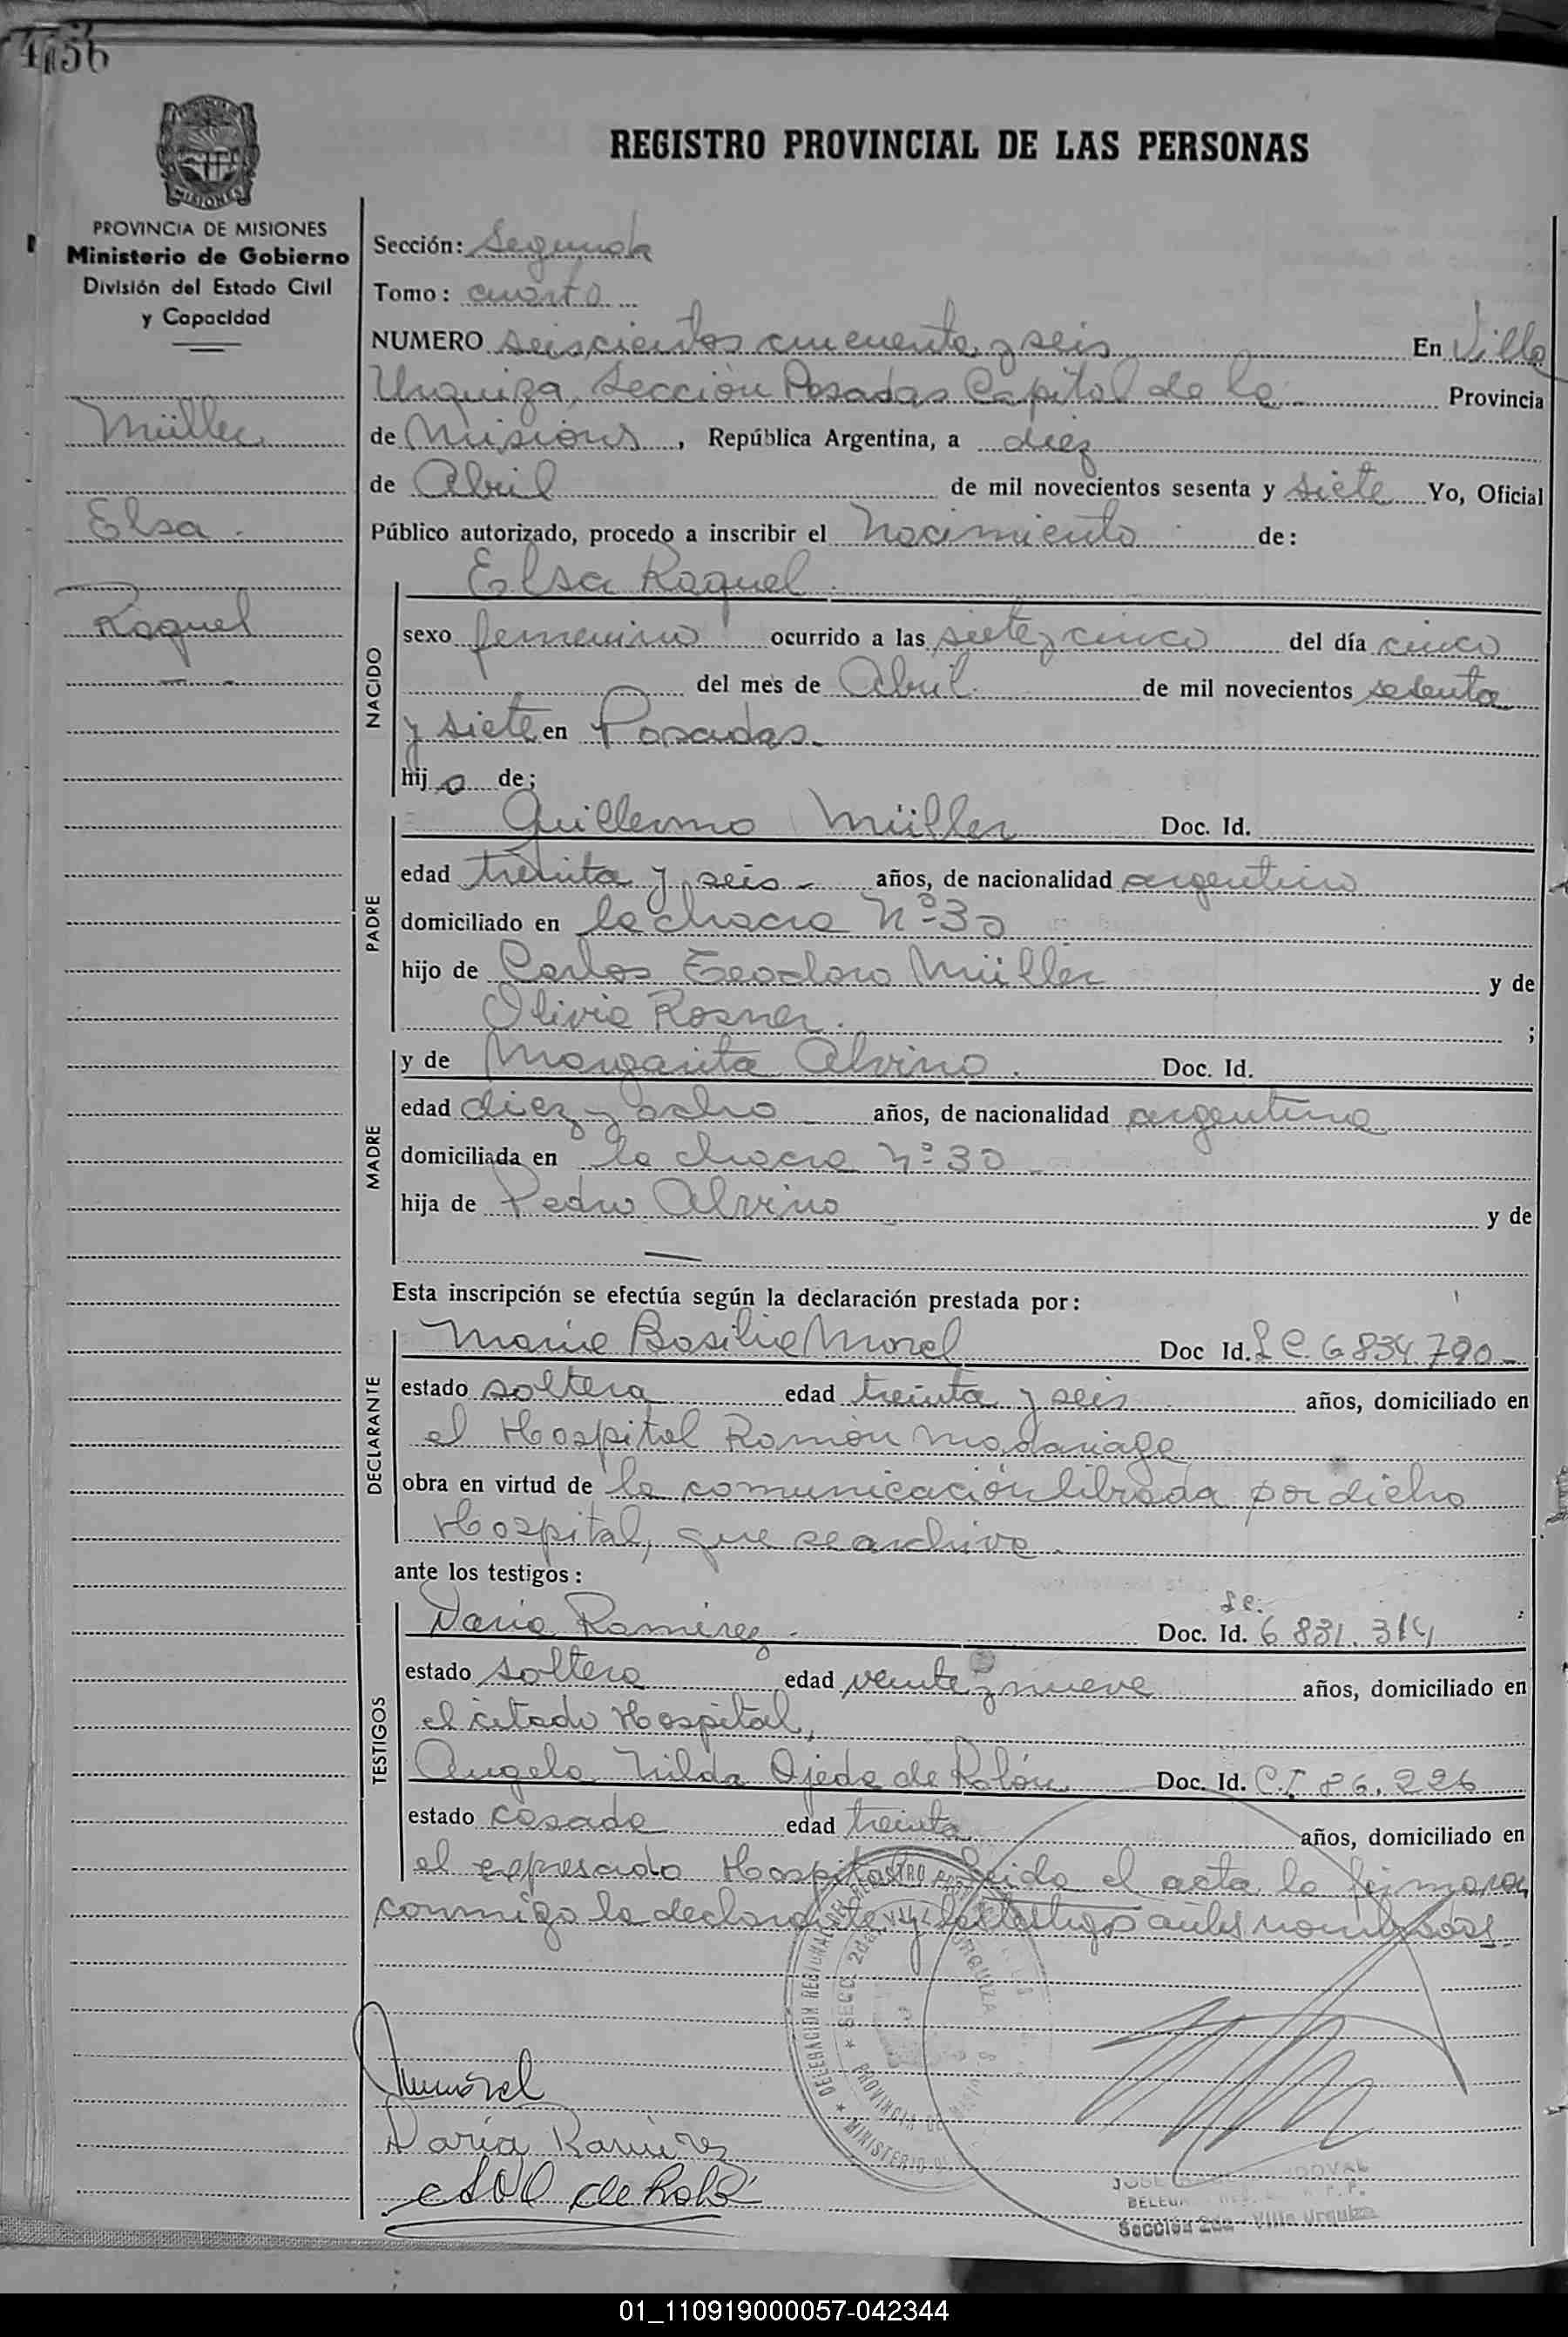 656
MISIONES
PROVINCIA DE MISIONES
Ministerio de Gobierno
División del Estado Civil
y Capacidad
Müller
Elsa
Raquel
REGISTRO PROVINCIAL DE LAS PERSONAS
Sección: Segunda
Tomo: cuarto
NUMERO seiscientos cincuenta y seis En Villa
Urquiza, Sección Posadas Capital de la Provincia
de Misiones, República Argentina, a diez
de Abril de mil novecientos sesenta y siete Yo, Oficial
Público autorizado, procedo a inscribir el Nacimiento de:
Elsa Raquel
NACIDO
sexo femenino ocurrido a las siete y cinco del día cinco
del mes de Abril de mil novecientos sesenta
y siete en Posadas.
hij a de;
PADRE
Guillermo Müller Doc. Id.
edad treinta y seis años, de nacionalidad argentino
domiciliado en la chacra Nº 30
hijo de Carlos Teodoro Müller y de
Olivia Rosner. ;
MADRE
y de Margarita Alvino. Doc. Id.
edad diez y ocho años, de nacionalidad argentina
domiciliada en la chacra Nº 30
hija de Pedro Alvino y de
—
Esta inscripción se efectúa según la declaración prestada por:
DECLARANTE
Maria Basilia Morel Doc Id. L C. 6834790
estado soltera edad treinta y seis años, domiciliado en
el Hospital Ramón Madariaga
obra en virtud de la comunicación librada por dicho
Hospital, que se archiva.
ante los testigos:
TESTIGOS
L C.
Daria Ramirez. Doc. Id. 6 831. 314
estado soltera edad veinte y nueve años, domiciliado en
el citado Hospital,
Angela Nilda Ojeda de Rolón Doc. Id. C.I 86.226
estado casada edad treinta años, domiciliado en
el expresado Hospital. Leida el acta la firmaron
conmigo la declarante y los testigos antes nombrados.
DELEGACION
SECC. 2da VILLA URQUIZA
PROVINCIA DE MISIONES
MINISTERIO DE
Mmorel
Daria Ramirez
de Roló
JOSE SANDOVAL
Sección 2da - Villa Urquiza
01_110919000057-042344